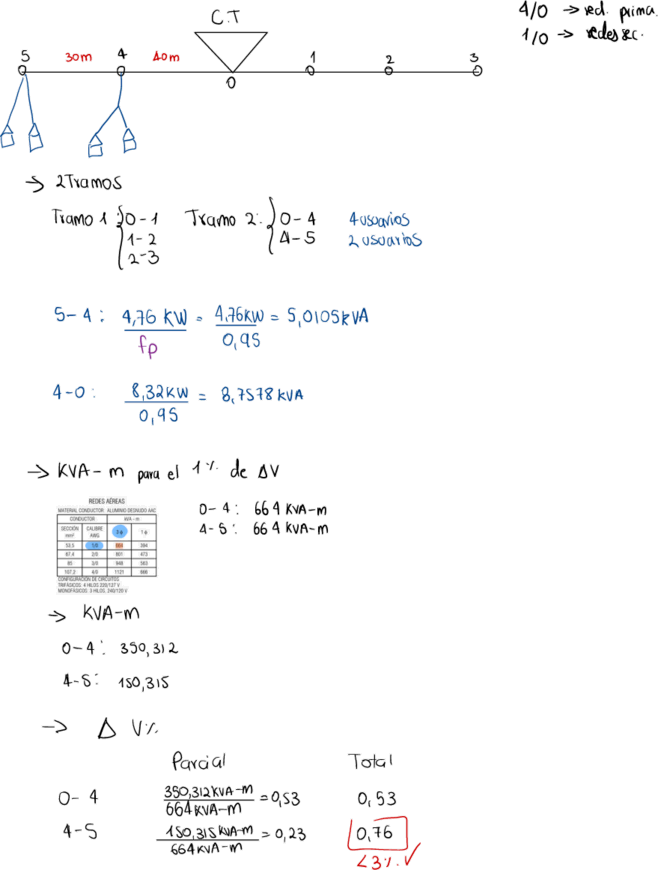 C.T
4/0 → red. prima.
1/0 → redes sec.
5 30m 4 40m 0 1 2 3
→ 2 Tramos
Tramo 1: { 0-1 Tramo 2: { 0-4 4 usuarios
1-2 4-5 2 usuarios
2-3
5-4: 4,76 KW / fp = 4,76KW / 0,95 = 5,0105 kVA
4-0: 8,32KW / 0,95 = 8,7578 KVA
→ KVA-m para el 1% de ΔV
REDES AÉREAS
MATERIAL CONDUCTOR: ALUMINIO DESNUDO AAC
CONDUCTOR kVA - m
SECCIÓN mm² CALIBRE AWG. 3 φ 1 φ
53,5 1/0 664 394
67,4 2/0 801 473
85 3/0 948 563
107,2 4/0 1121 666
CONFIGURACIÓN DE CIRCUITOS
TRIFÁSICOS: 4 HILOS 220/127 V
MONOFÁSICOS: 3 HILOS 240/120 V
0-4: 664 KVA-m
4-5: 664 KVA-m
→ KVA-m
0-4: 350,312
4-5: 150,315
→ Δ V%
Parcial Total
0-4 350,312 KVA-m / 664 KVA-m = 0,53 0,53
4-5 150,315 KVA-m / 664 KVA-m = 0,23 0,76
<3% ✓